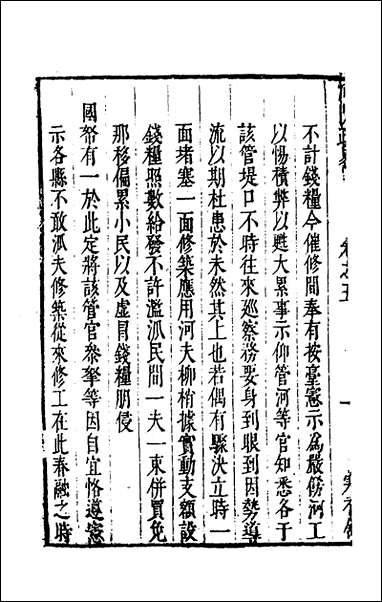 不計錢糧今催修間奉有按臺憲示為嚴飭河工
以惕積弊以甦大累事示仰管河等官知悉各于
該管堤口不時往來巡察務要身到眼到因勢導
流以期杜患於未然其上也若偶有驟決立時一
面堵塞一面修築應用河夫柳梢據實動支額設
錢糧照數給發不許濫派民間一夫一束併買免
那移偏累小民以及虛冒錢糧朋侵
國帑有一於此定將該管官叅拏等因自宜恪遵憲
示各縣不敢派夫修築從來修工在此春融之時
卷之五